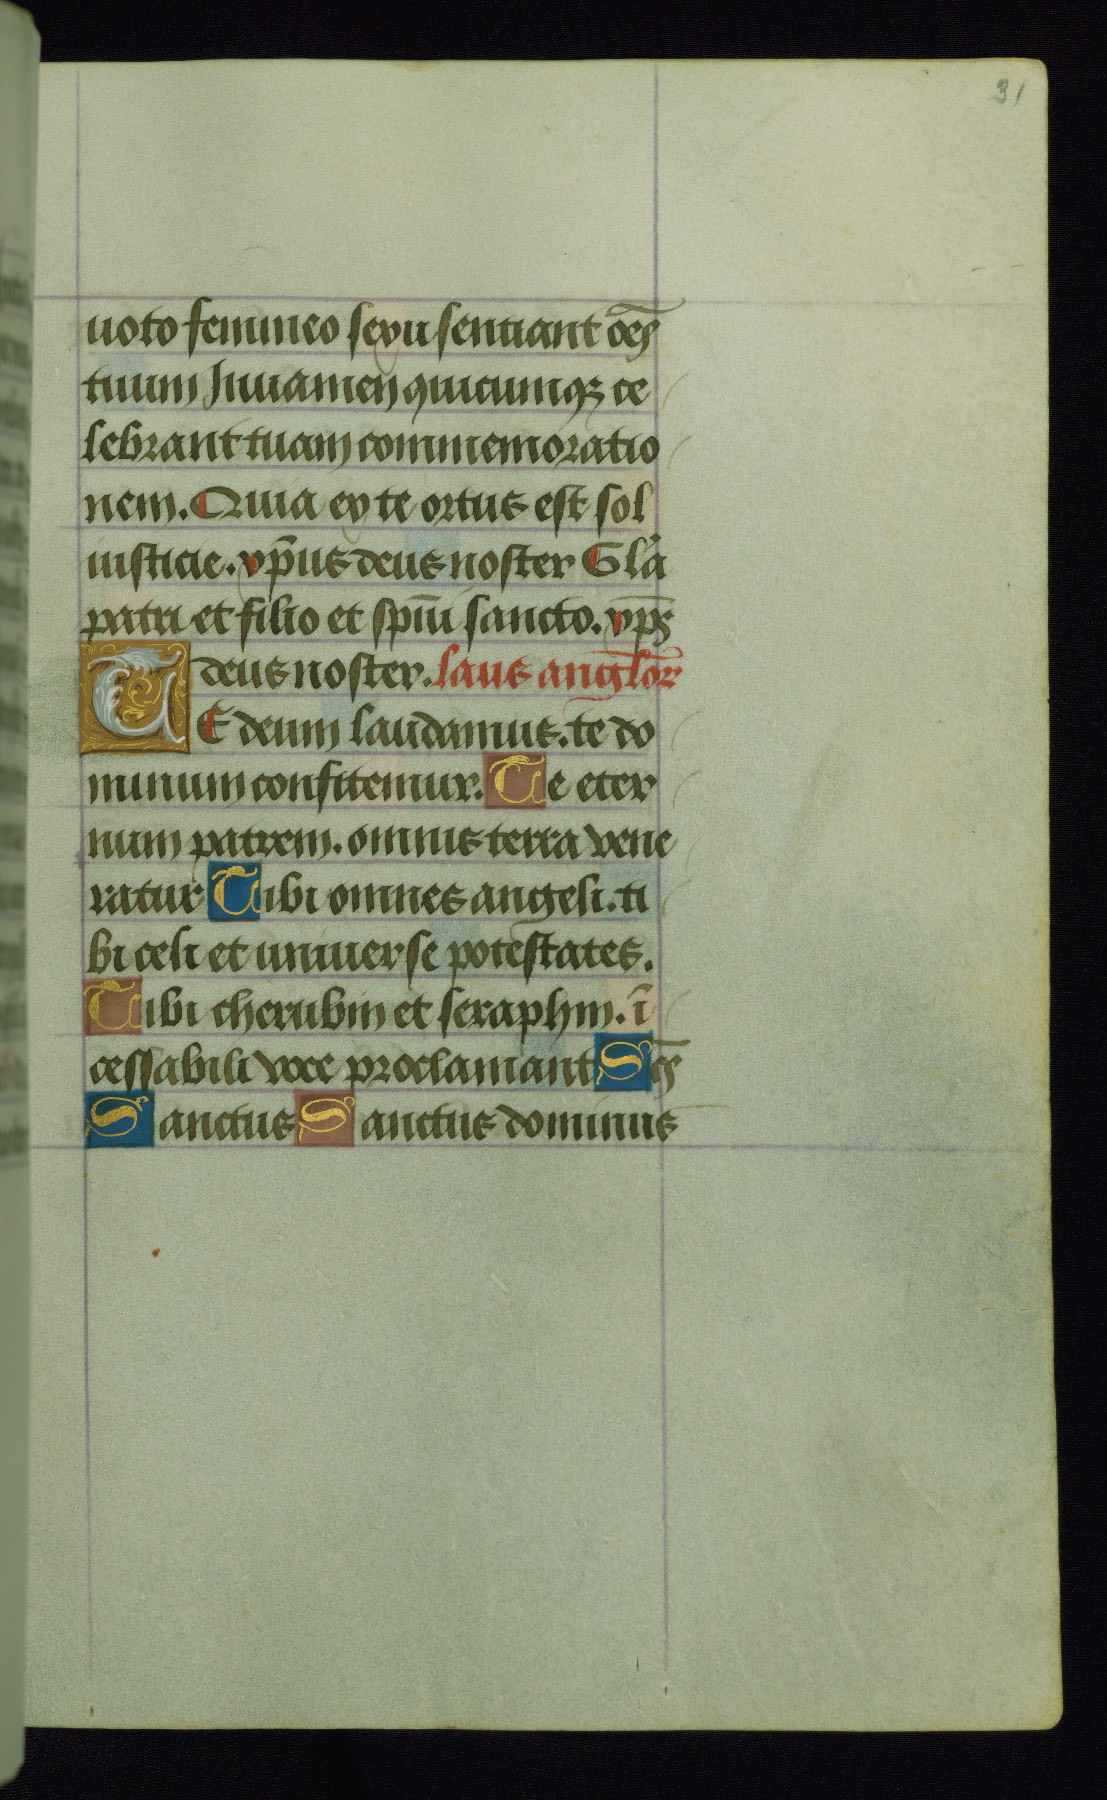 31
uoto femineo sexu sentiant oe͂s
tuum Juuamen quicumqꝫ ce
lebrant tuam commemoratio
nem. Quia ex te ortus est sol
iusticie. xp̄us deus noster Gla͂
patri et filio et spi͂ui sancto. xp̄s
deus noster. laus anglo͂r
TE deum laudamus. te do
minum confitemur. Te eter
num patrem. omnis terra vene
ratur Tibi omnes angeli. ti
bi celi et uniuerse potestates.
Tibi cherubin et seraphin. i͂
cessabili voce proclamant Sc͂s
Sanctus Sanctus dominus